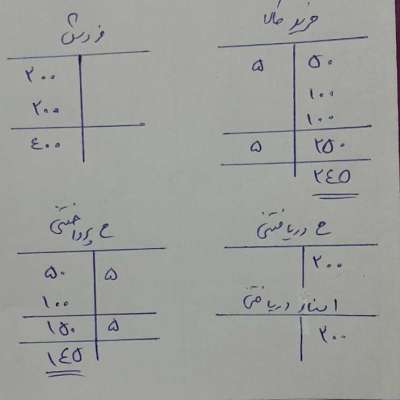 خرید کالا
۵۰ ۵
۱۰۰
۱۰۰
۲۵۰ ۵
۲۴۵
فروش
۲۰۰
۲۰۰
۴۰۰
ح دریافتنی
۲۰۰
اسناد دریافتنی
۲۰۰
ح پرداختنی
۵ ۵۰
۱۰۰
۵ ۱۵۰
۱۴۵